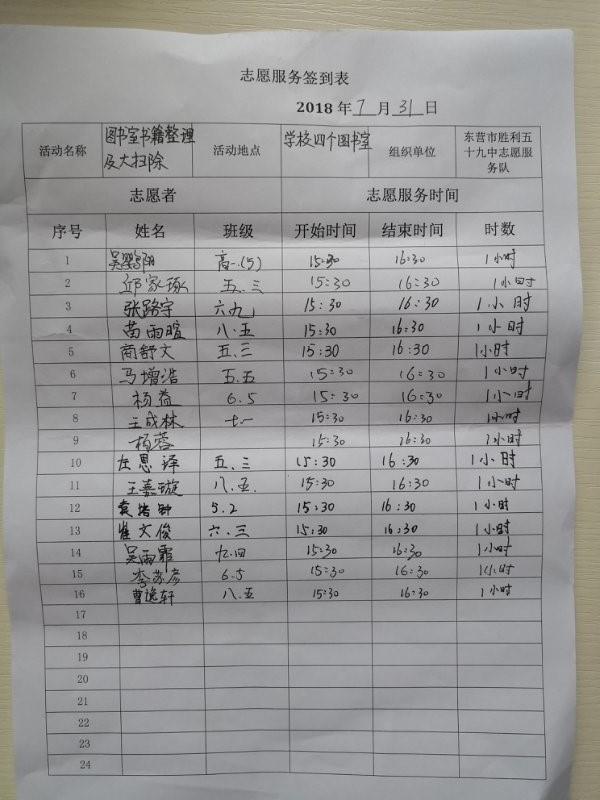 志愿服务签到表
2018 年 7 月 31 日
活动名称 图书室书籍整理及大扫除 活动地点 学校四个图书室 组织单位 东营市胜利五十九中志愿服务队
志愿者 志愿服务时间
序号 姓名 班级 开始时间 结束时间 时数
1 吴鹏阳 高一.(5) 15:30 16:30 1小时
2 邱家琢 五.三 15:30 16:30 1小时
3 张路宇 六九 15:30 16:30 1小时
4 苗雨暄 八.五 15:30 16:30 1小时
5 商舒文 五.三 15:30 16:30 1小时
6 马增浩 五.五 15:30 16:30 1小时
7 杨益 6.5 15:30 16:30 1小时
8 王成林 七一 15:30 16:30 1小时
9 杨蓉 15:30 16:30 1小时
10 左思泽 五.三 15:30 16:30 1小时
11 王嘉璇 八.五. 15:30 16:30 1小时
12 袁浩 5.2 15:30 16:30 1小时
13 崔文俊 六.三 15:30 16:30 1小时
14 吴雨霏 九.四 15:30 16:30 1小时
15 李苏彦 6.5 15:30 16:30 1小时
16 曹逸轩 八.五 15:30 16:30 1小时
17
18
19
20
21
22
23
24